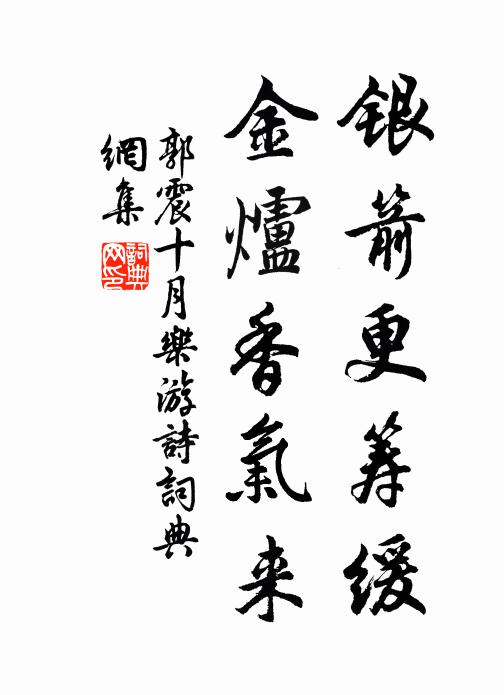 銀箭更筹緩
金爐香氣来
郭震十月樂游詩詞典
網集
詞典网印